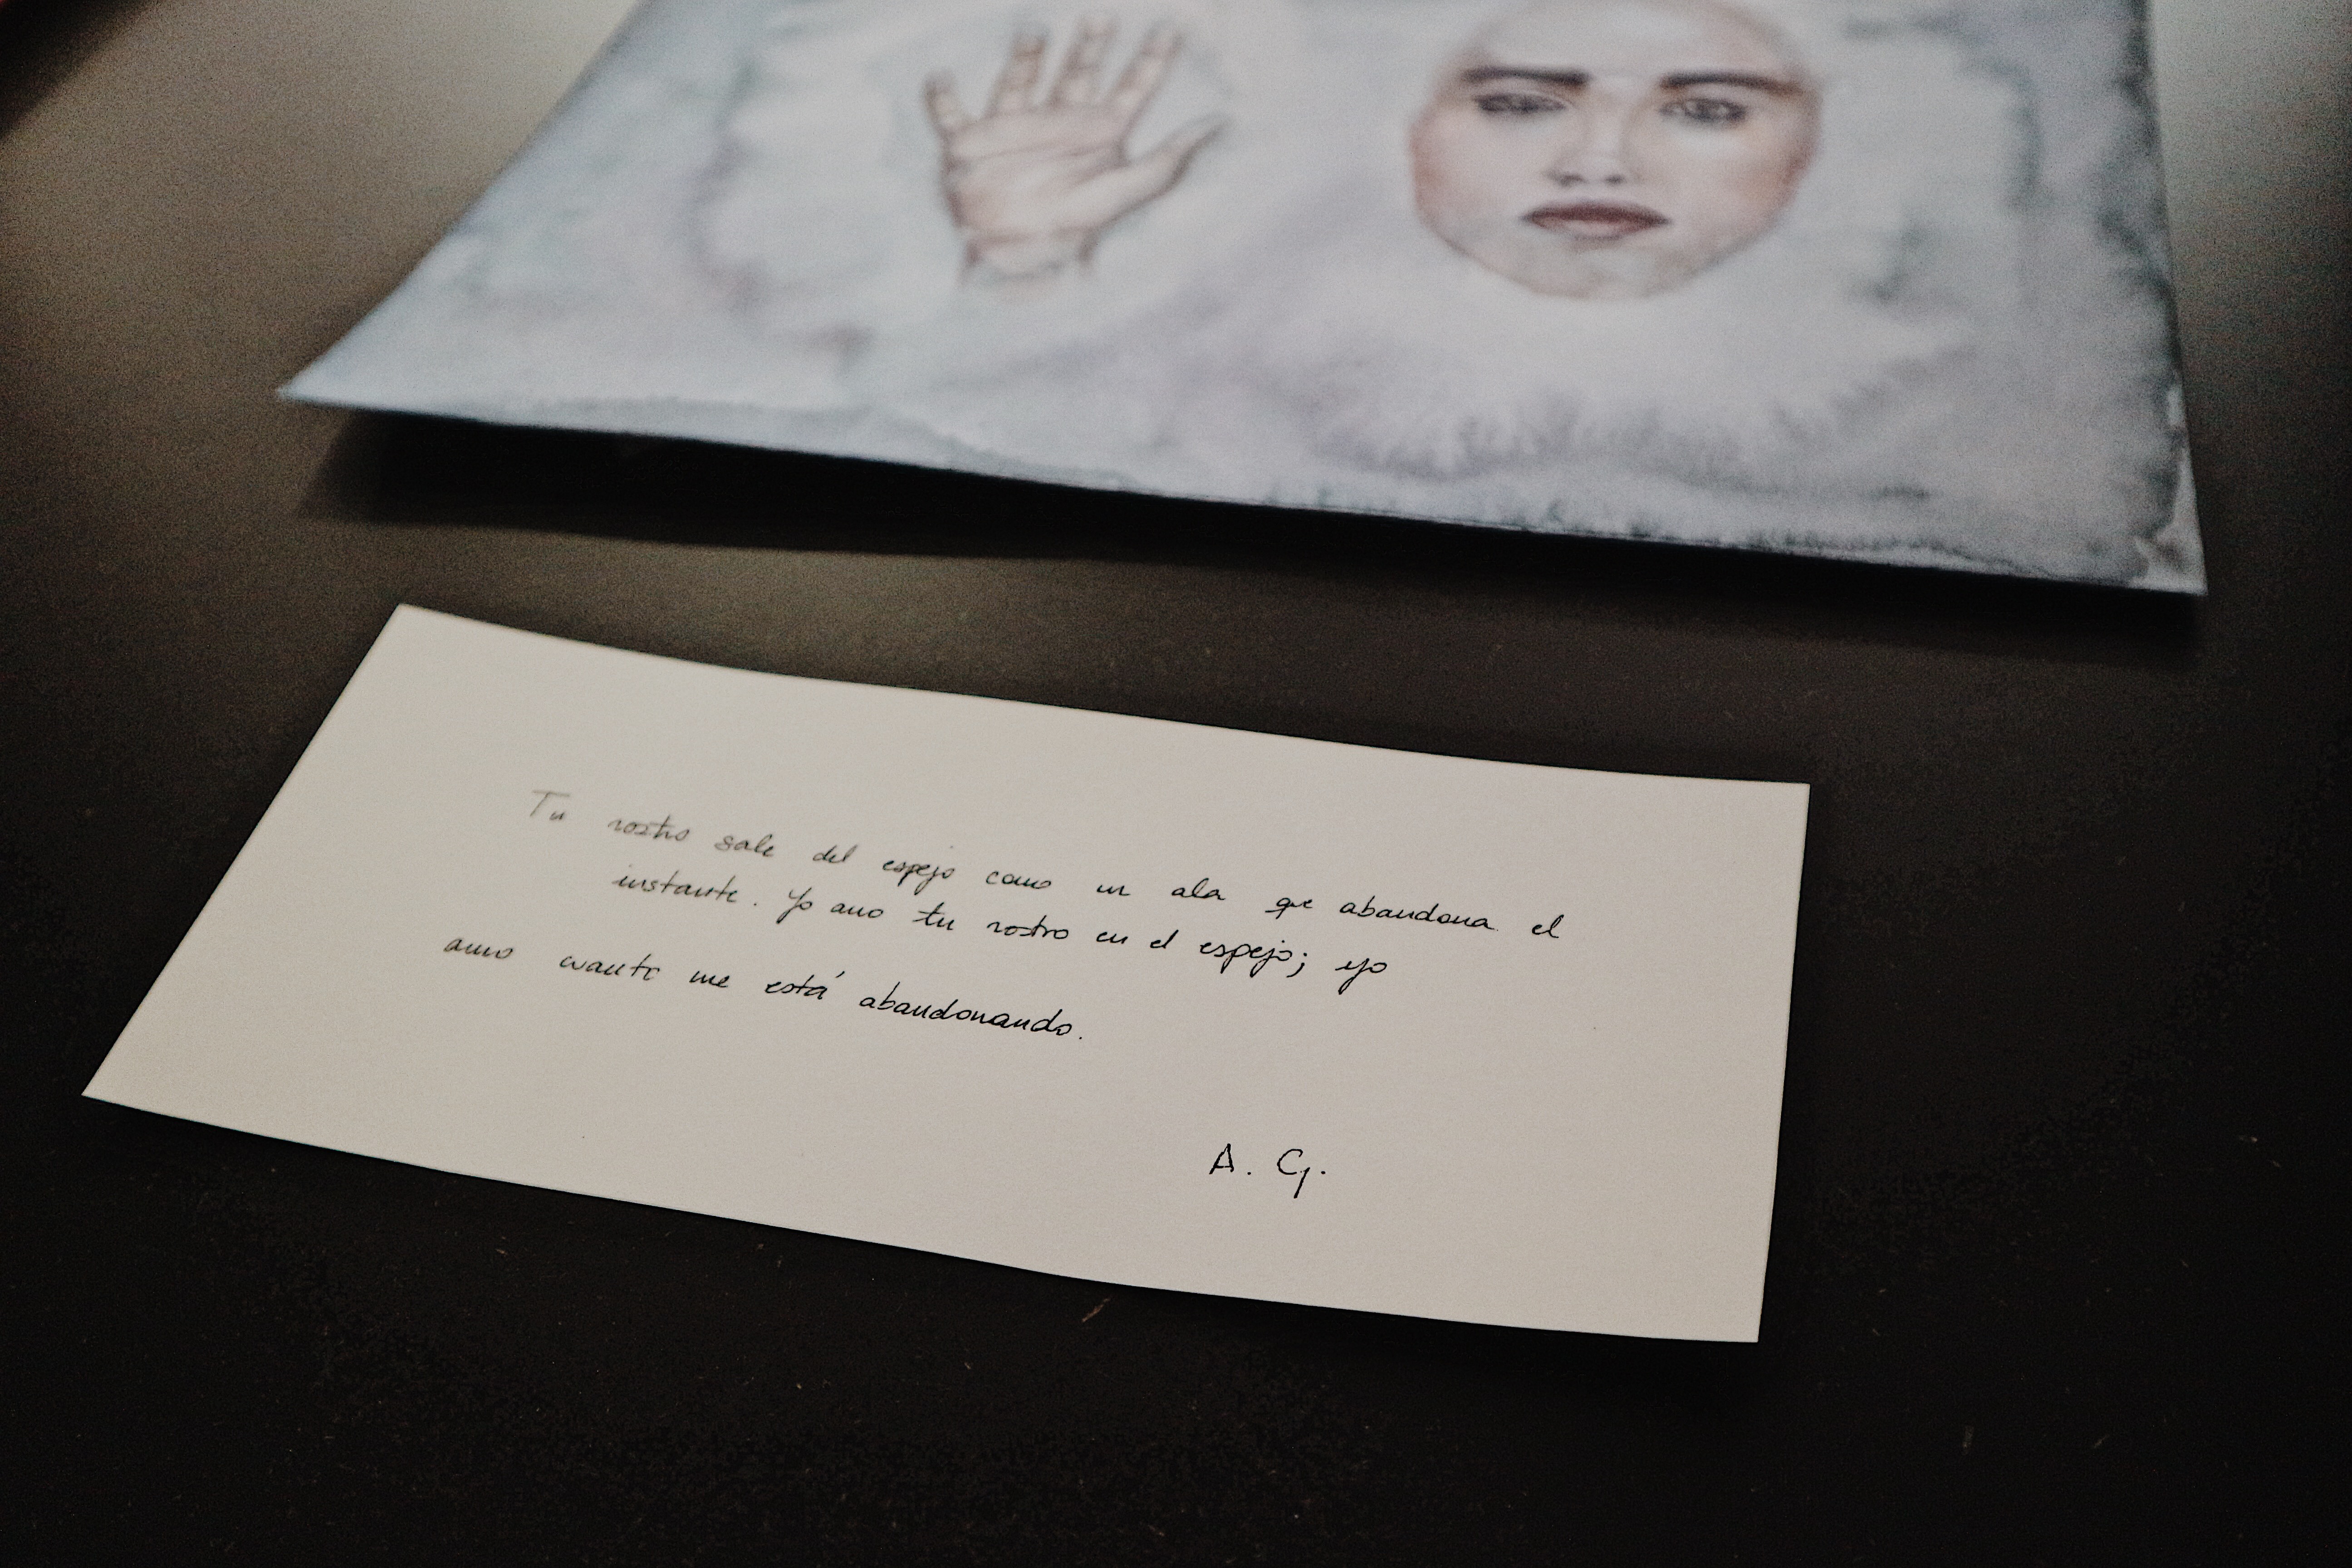 Tu rostro sale del espejo como un ala que abandona el
instante. Yo amo tu rostro en el espejo; yo
amo cuanto me está abandonando.
A. G.